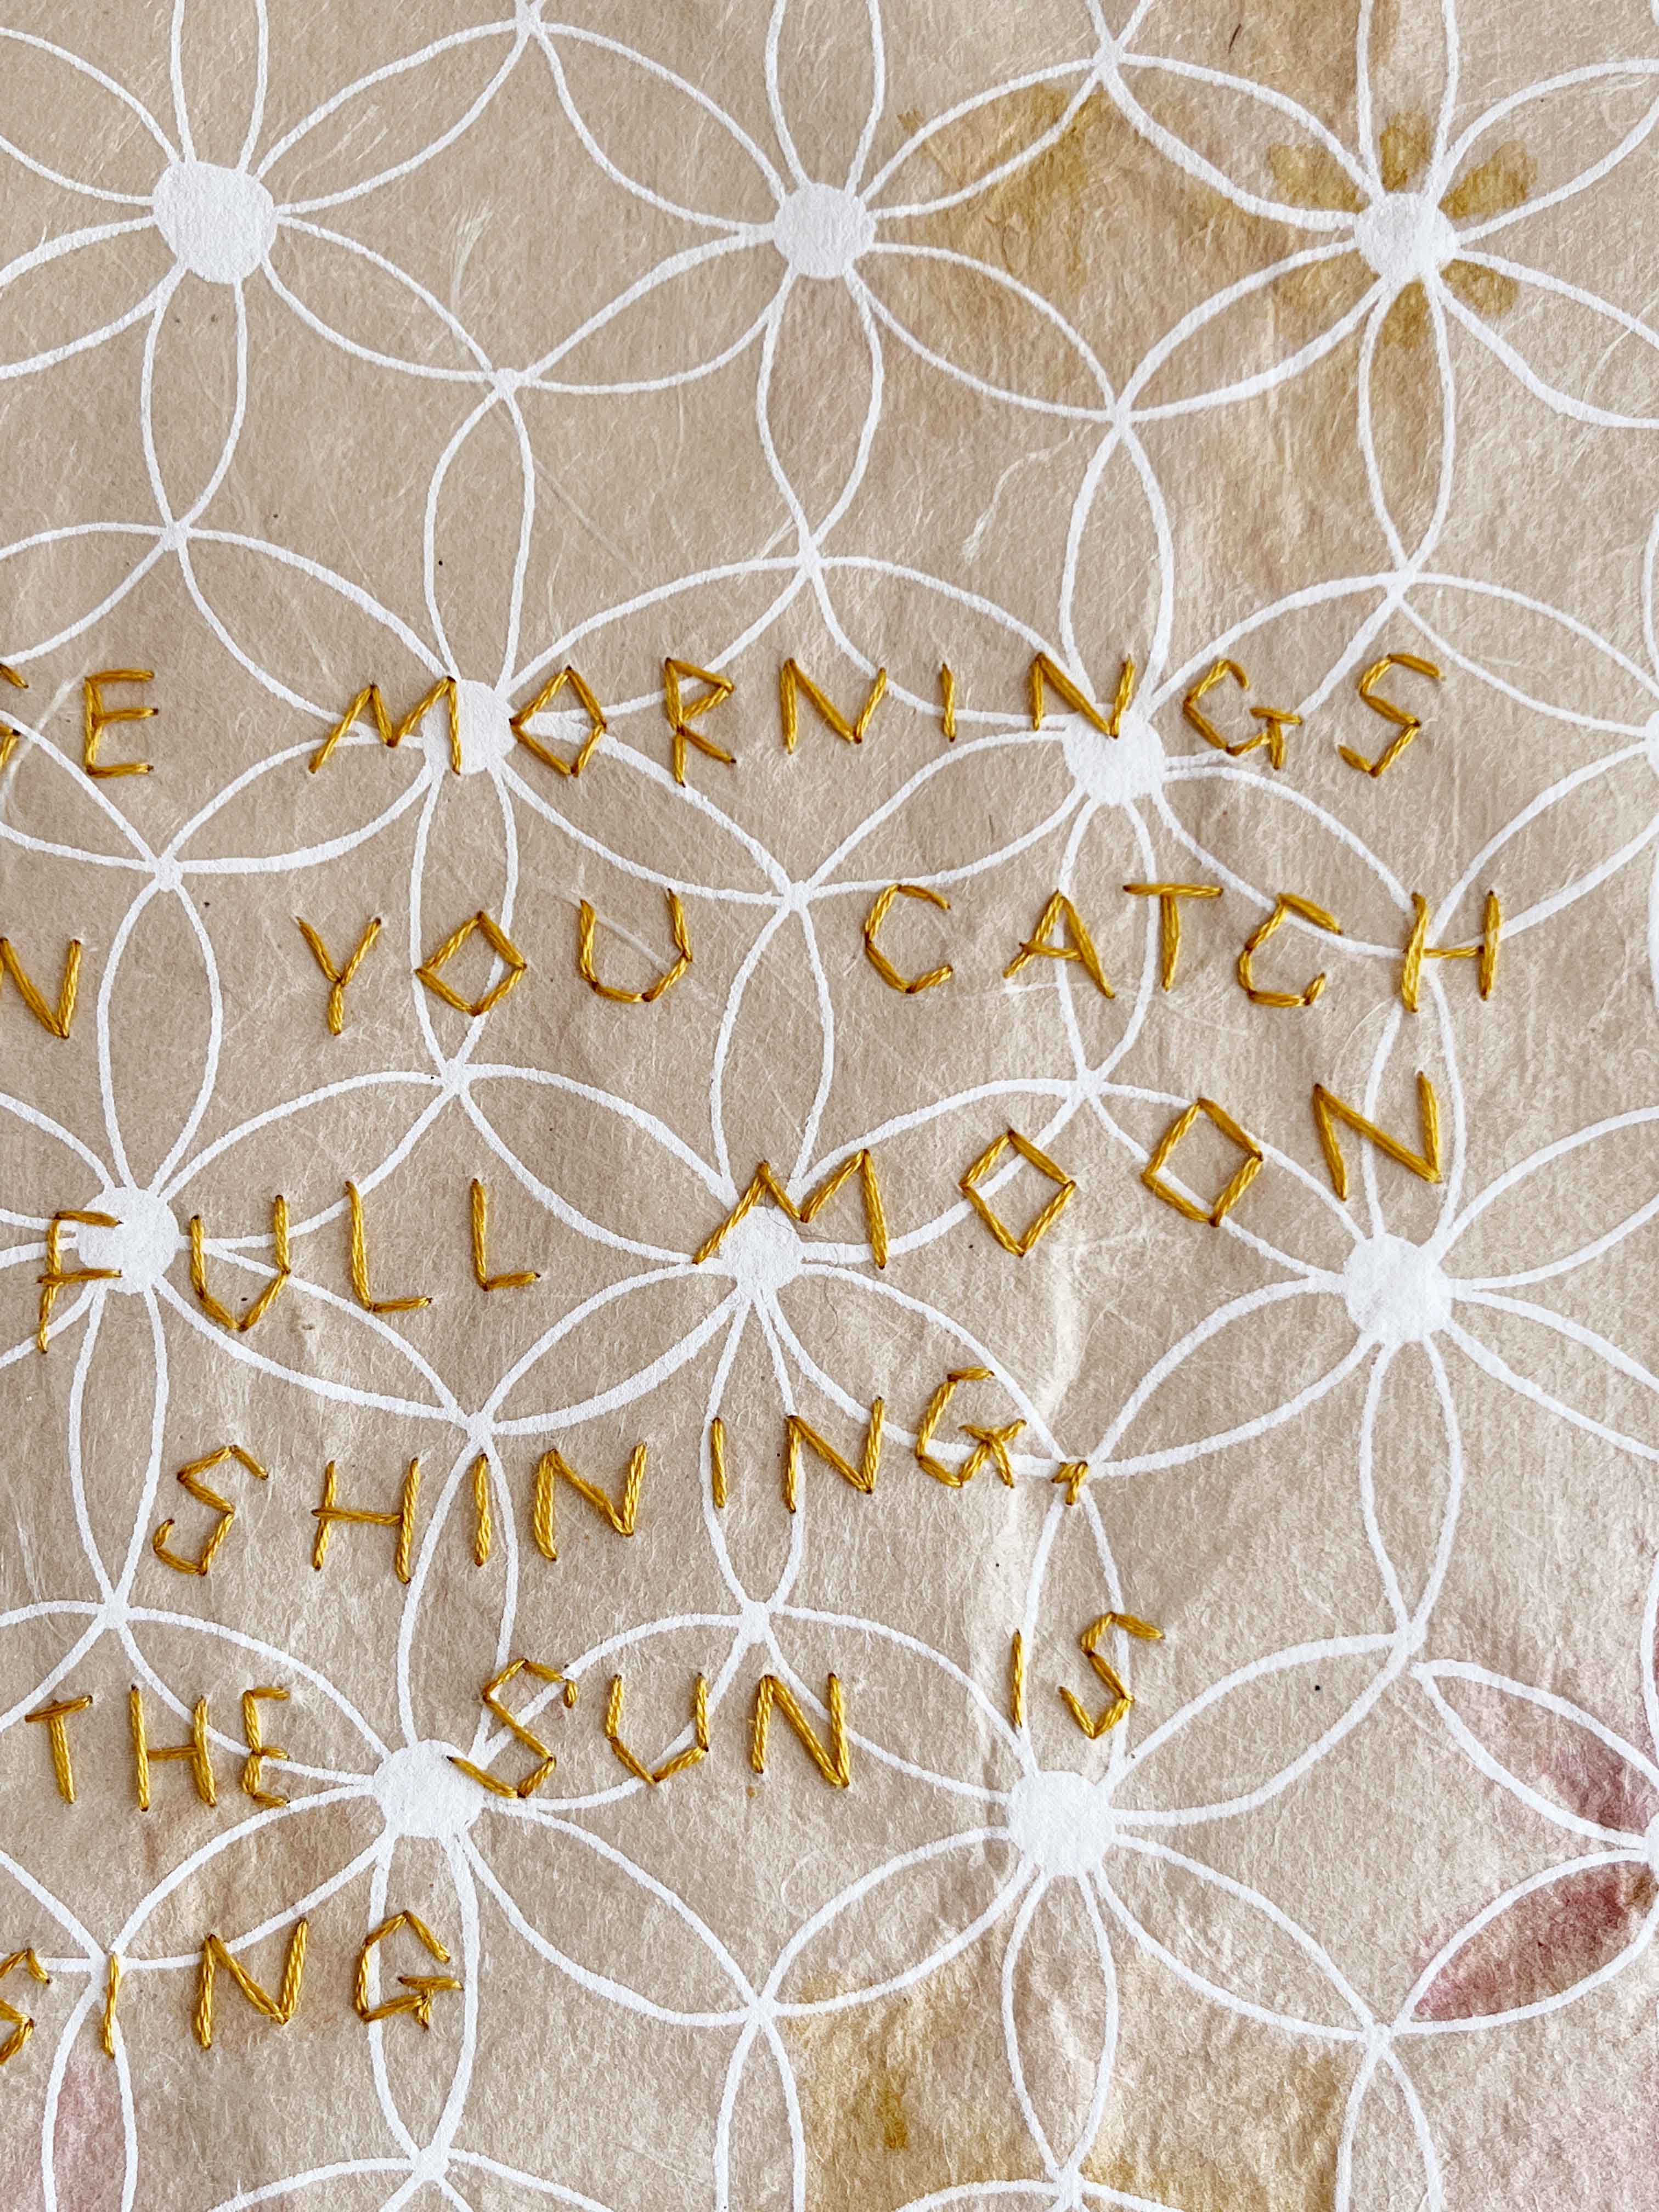 MORNINGS
YOU CATCH
FULL MOON
SHINING,
THE SUN IS